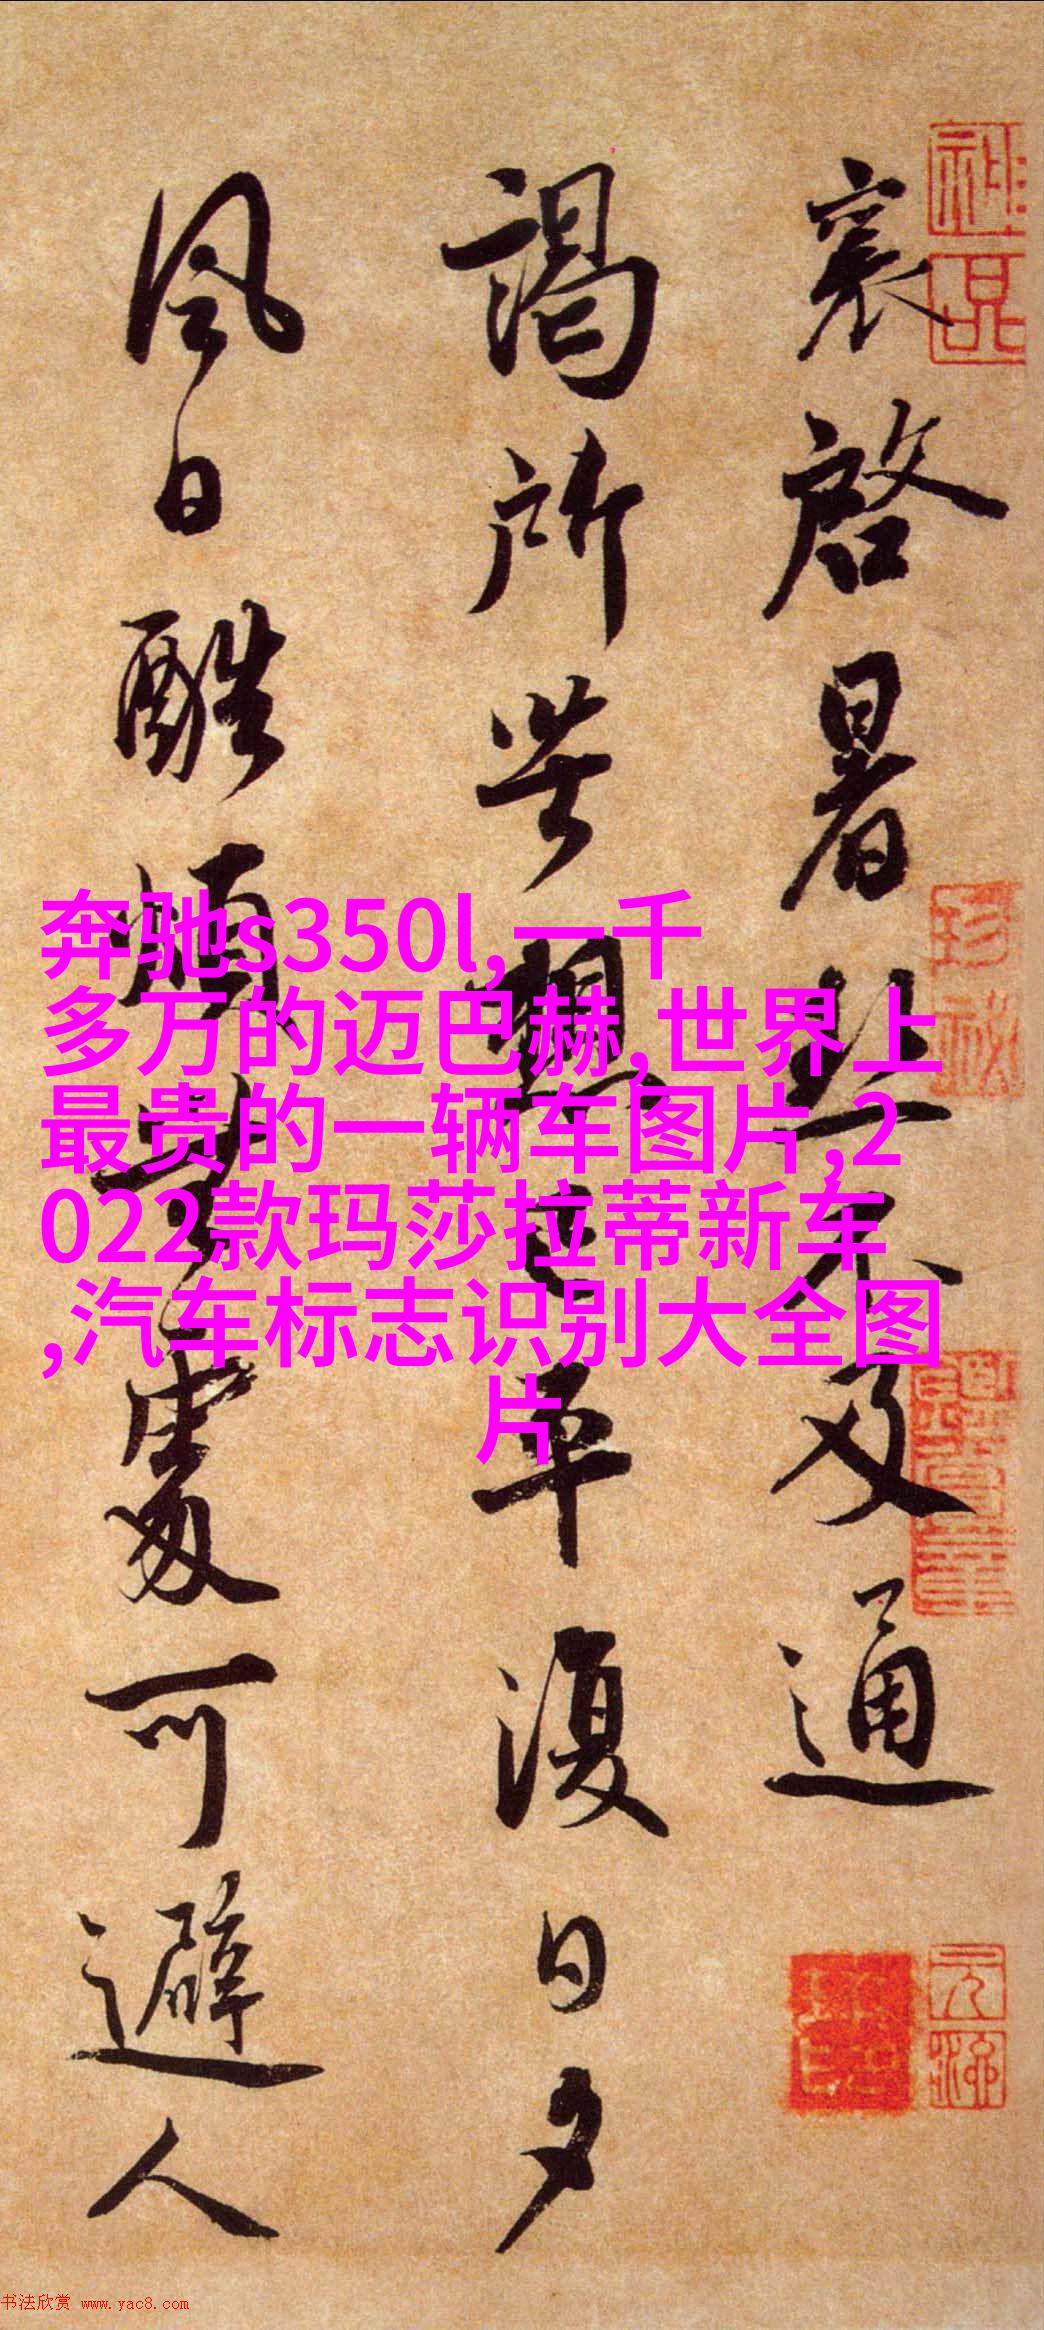 襄啓暑热不及通
謁所苦想已平復日夕
風日酷煩无處可避人
奔驰s350l,一千
多万的迈巴赫,世界上
最贵的一辆车图片,2
022款玛莎拉蒂新车
,汽车标志识别大全图
片
书法欣赏 www.yac8.com